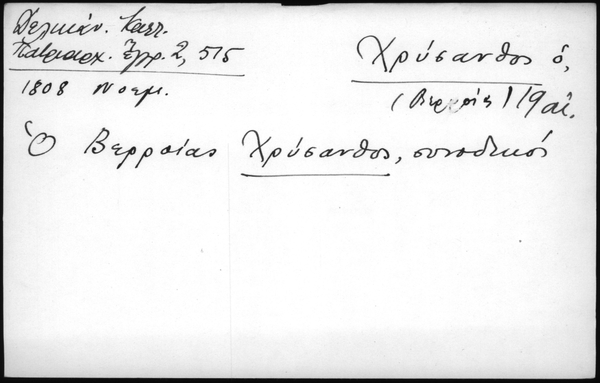 Δελικάν. Καλλ.
Πατριαρχ. Ἔγγρ. 2, 515
1808 Νοεμ.
Χρύσανθος ὁ,
(Βερροίας) 19 αἰ.
Ὁ Βερροίας Χρύσανθος, συνοδικός